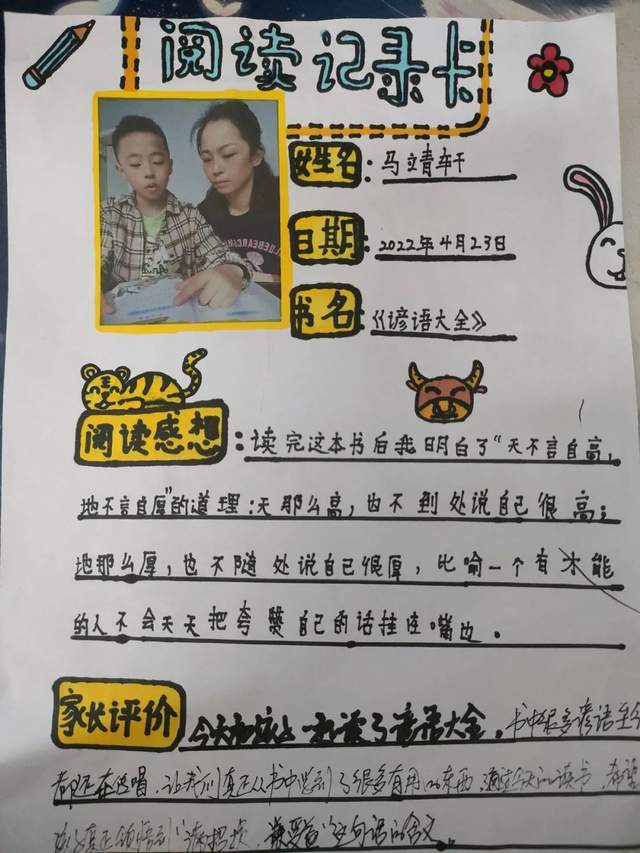 阅读记录卡
姓名:马立青轩
日期:2022年4月23日
书名:《谚语大全》
阅读感想:读完这本书后我明白了“天不言自高,
地不言自厚”的道理:天那么高,也不到处说自己很高;
地那么厚,也不随处说自己很厚,比喻一个有本能
的人不会天天把夸赞自己的话挂在嘴边。
家长评价 今天和孩子一起读了谚语大全,书中很多谚语至今
都还在传唱,让我们真正从书中学到了很多有用的东西,通过今天的读书,希望
孩子真正领悟到“满招损,谦受益”这句话的含义。